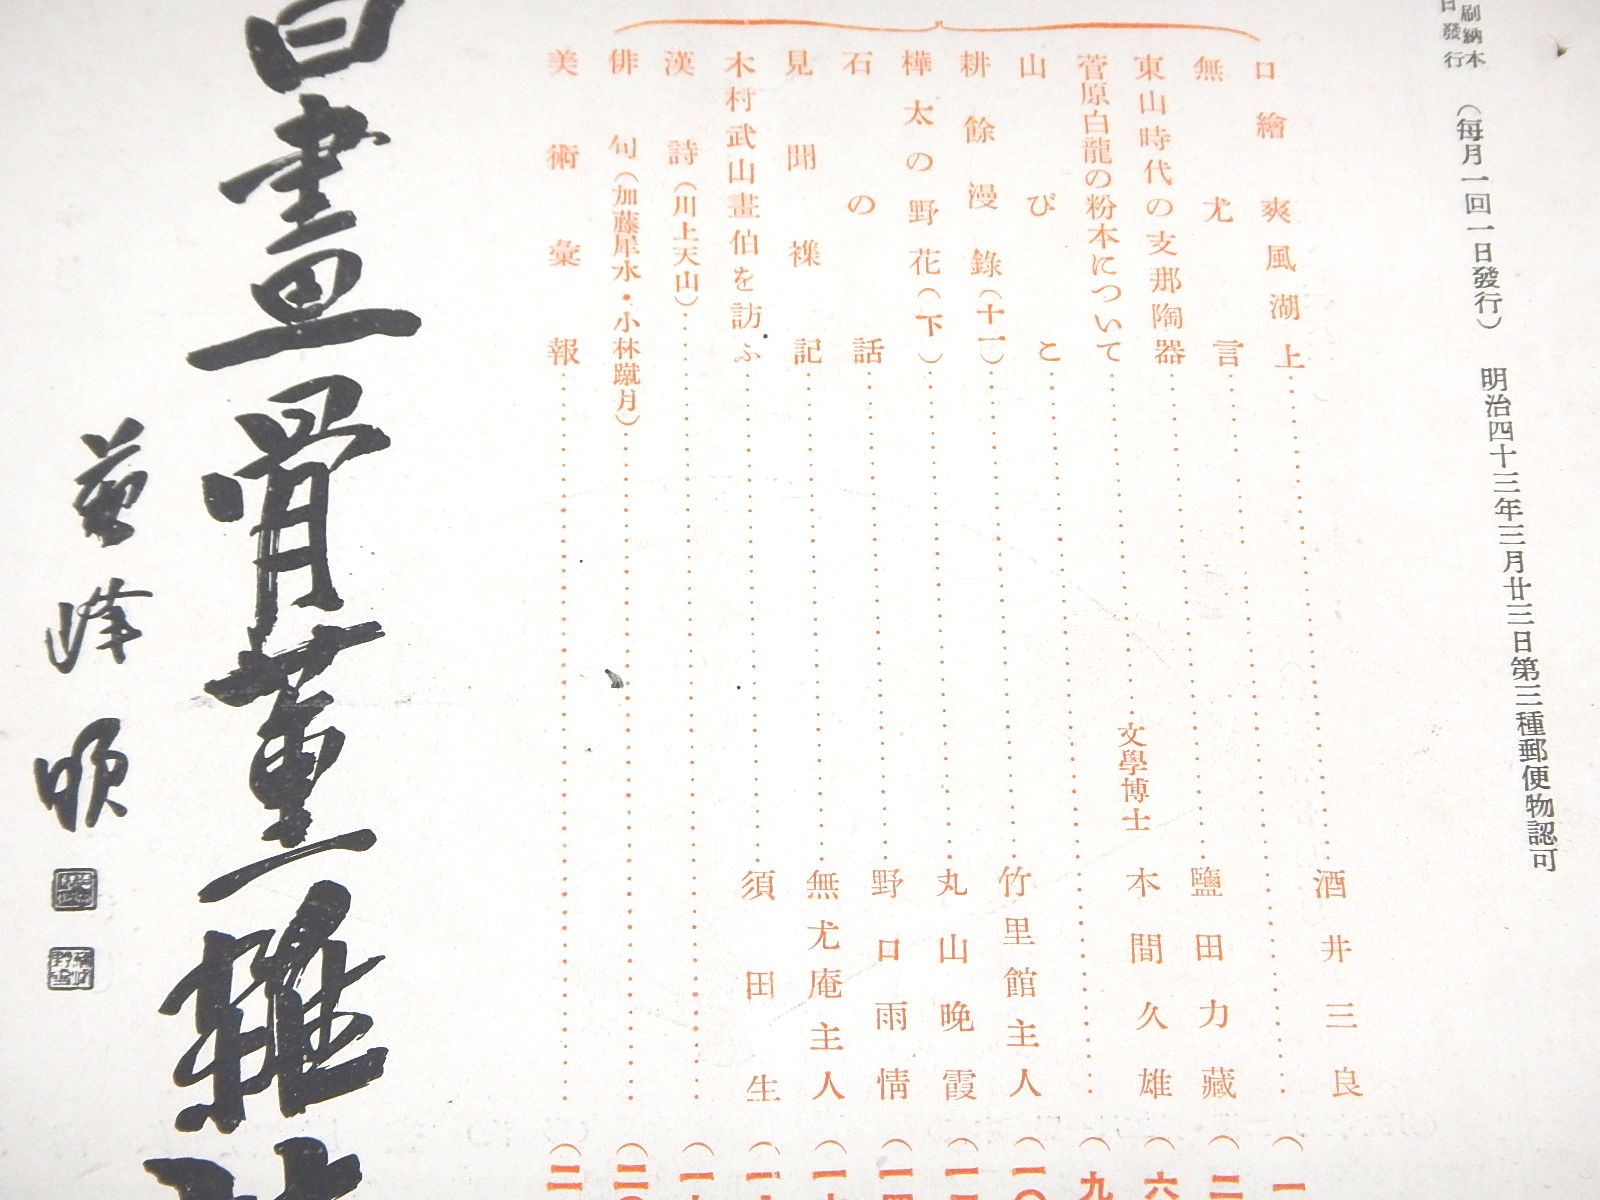 刷納本
日發行
(每月一回一日發行) 明治四十三年三月廿三日第三種郵便物認可
口繪 爽風湖上 酒井三良 (一
無尤言 (二
東山時代の支那陶器 鹽田力藏 (六
菅原白龍の粉本について 文學博士 本間久雄 (九
山びこ (一〇
耕餘漫錄(十一) 竹里館主人 (一二
樺太の野花(下) 丸山晩霞 (一四
石の話 野口雨情
見聞襍記 無尤庵主人
木村武山畫伯を訪ふ 須田生
漢詩(川上天山)
俳句(加藤犀水・小林蹴月) (二〇
美術彙報 (二
書畫骨董雜誌